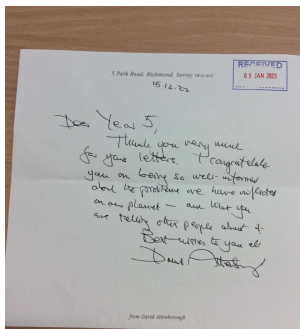 5 Park Road, Richmond, Surrey
RECEIVED
03 JAN 2023
15.12.22
Dear Year 5,
Thank you very much
for your letters. I congratulate
you on being so well-informed
about the problems we have inflicted
on our planet – and that you
are telling other people about it.
Best wishes to you all
David Attenborough
from David Attenborough